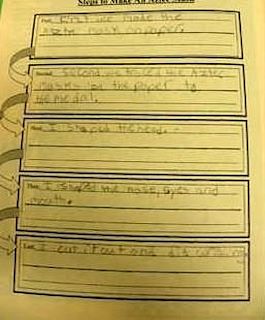 Steps to Make An Aztec Mask
First, First we made the
Aztec mask on paper.
Second, Second we traced the Aztec
masks on the paper to
the medal.
Next, I shaped the head.
Then, I shaped the nose, eyes and
mouth.
Last, I cut it out and